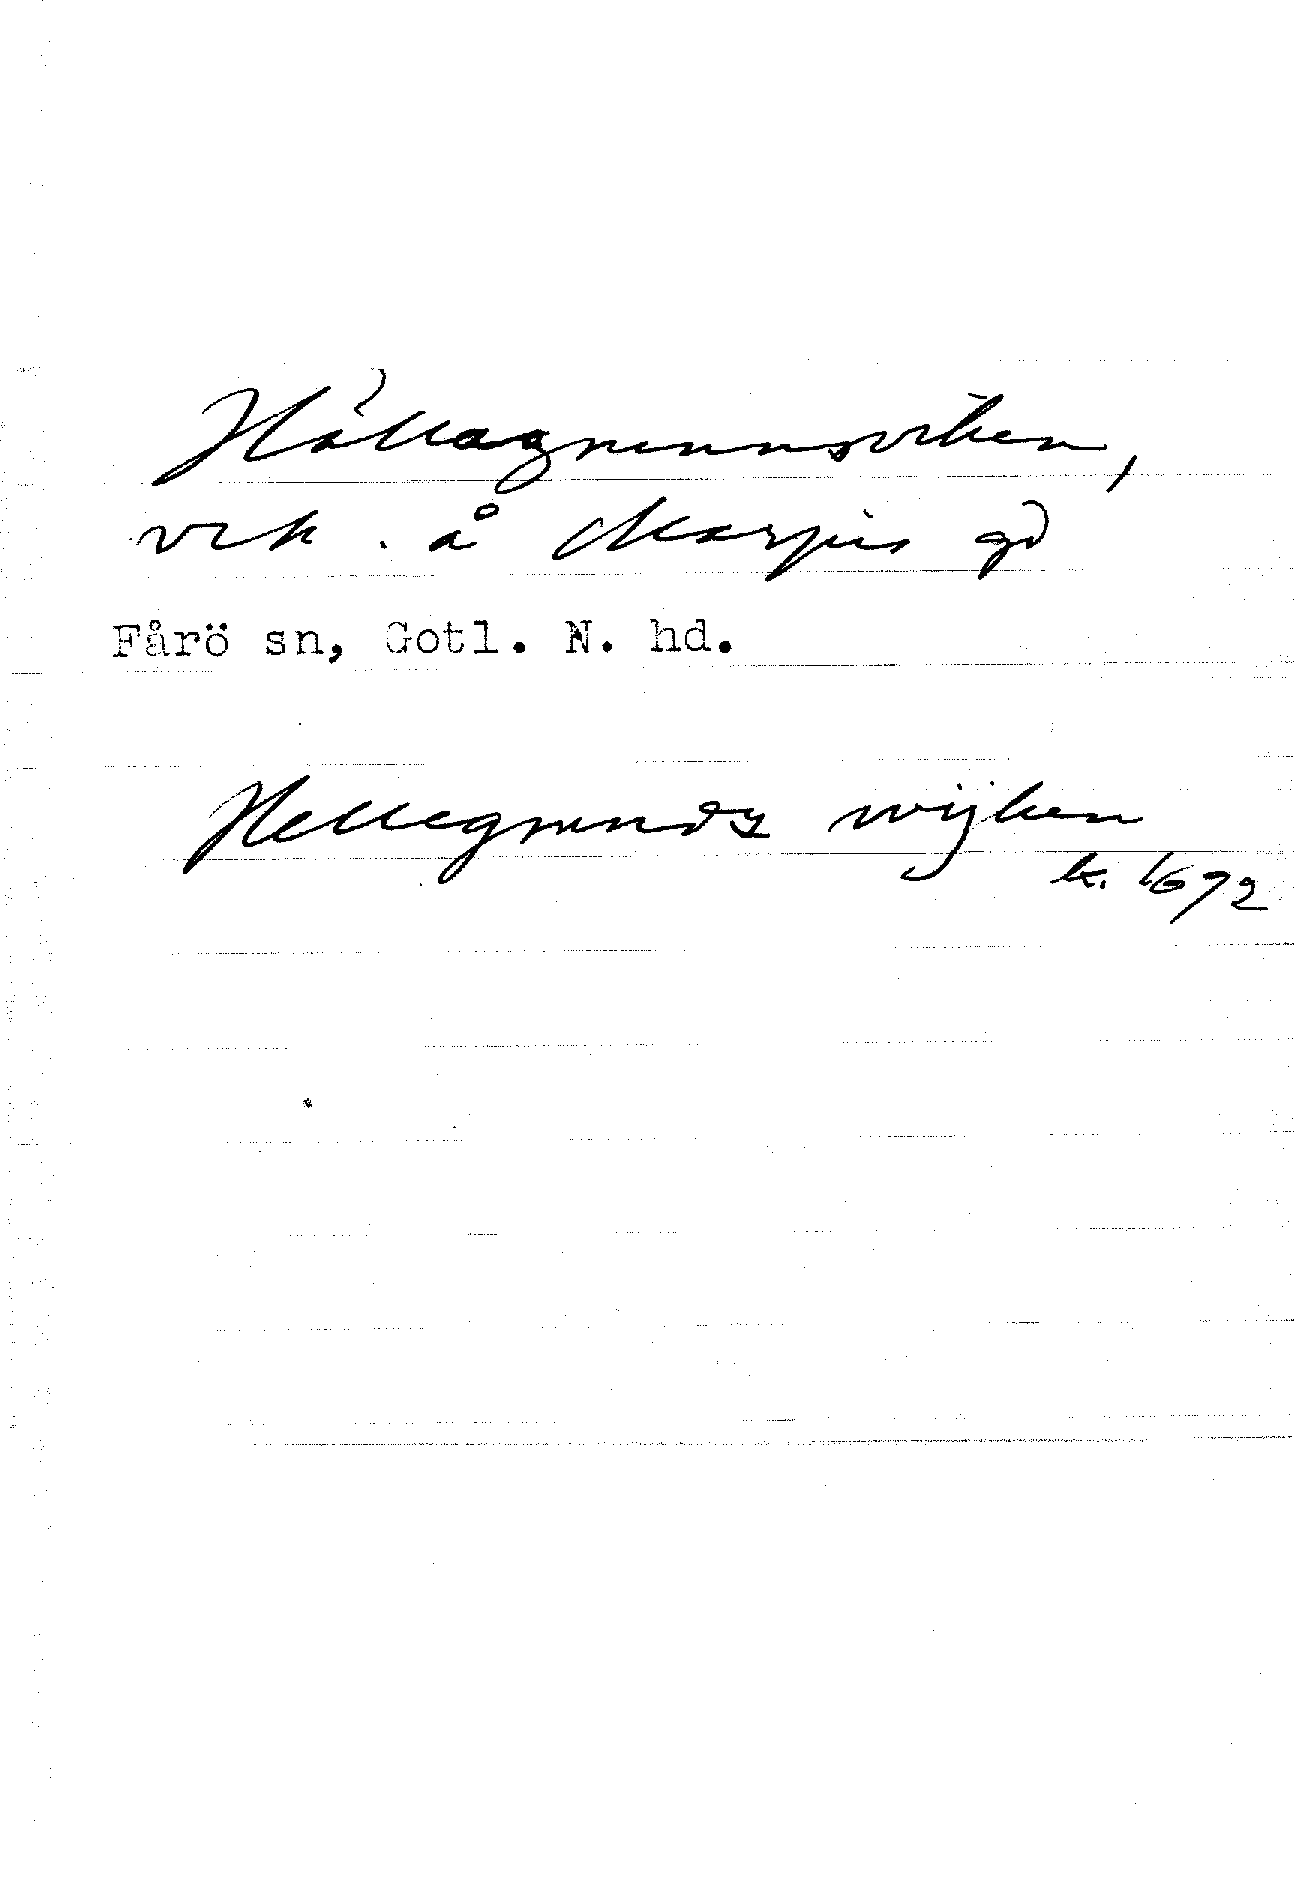 Hällagrunnsviken,
vik . å Marpis gd
Fårö sn, Gotl. N. hd.
Hellegrunds wijken
k. 1692